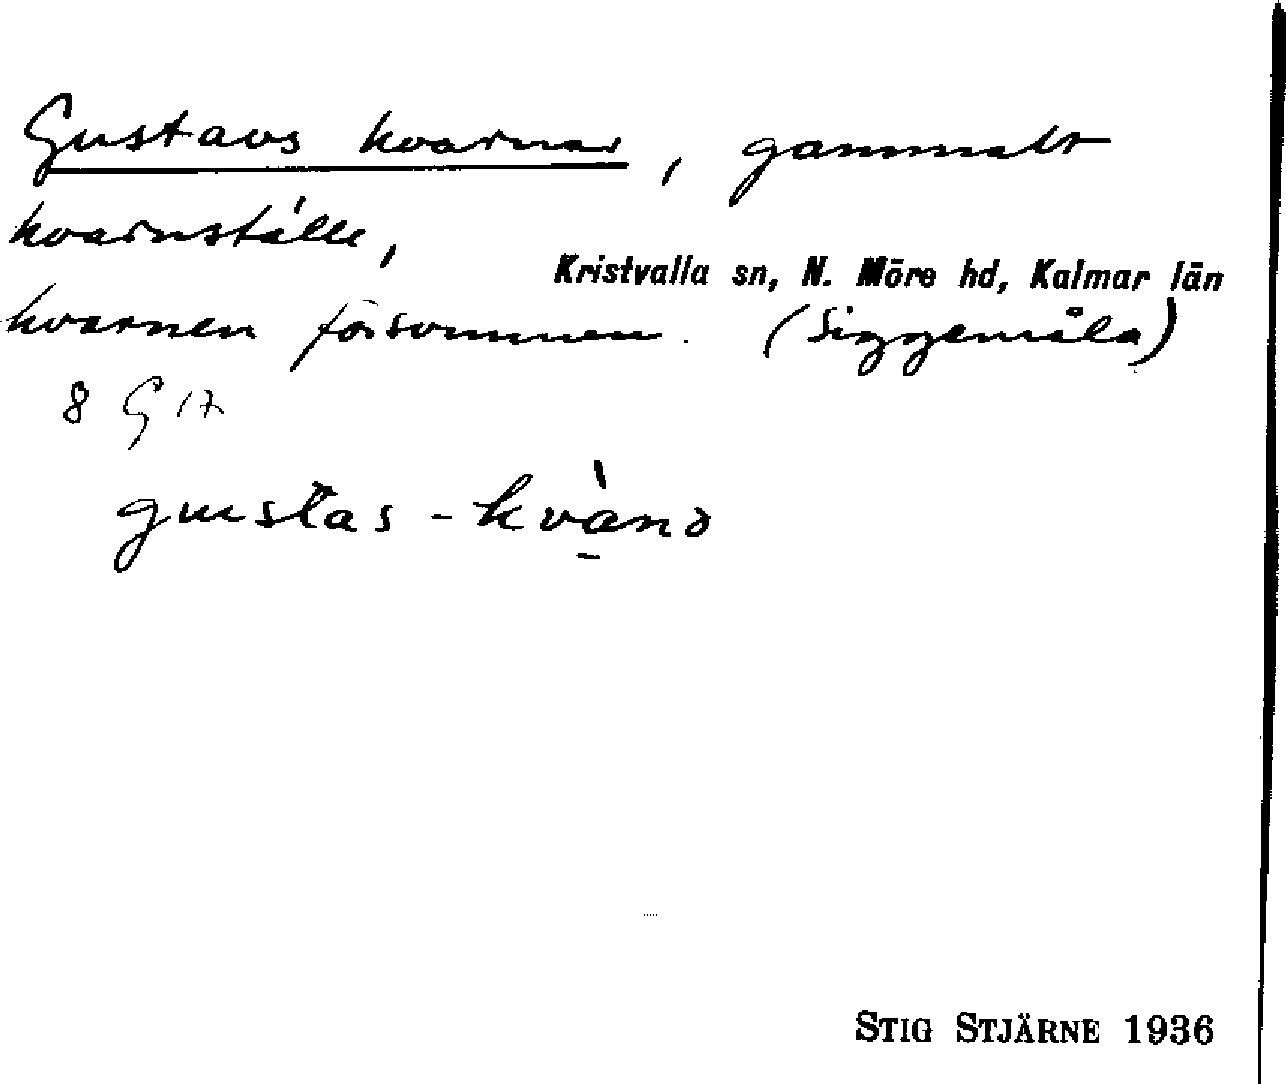 Gustavs kvarnar, gammalt
kvarnställe,
Kristvalla sn, N. Möre hd, Kalmar län
kvarnen försvunnen. (Siggemåla)
8 G 17
gustas-kvànə
STIG STJÄRNE 1936